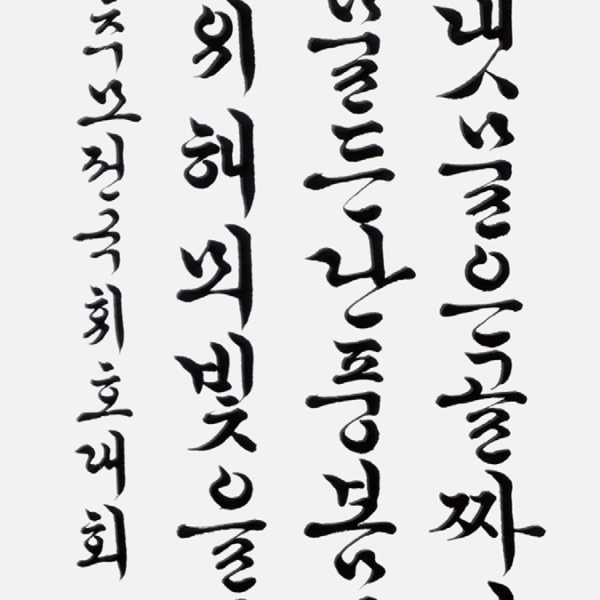 냇물은골짜
물든단풍봄
위해뫼빛을
추모전국휘호대회